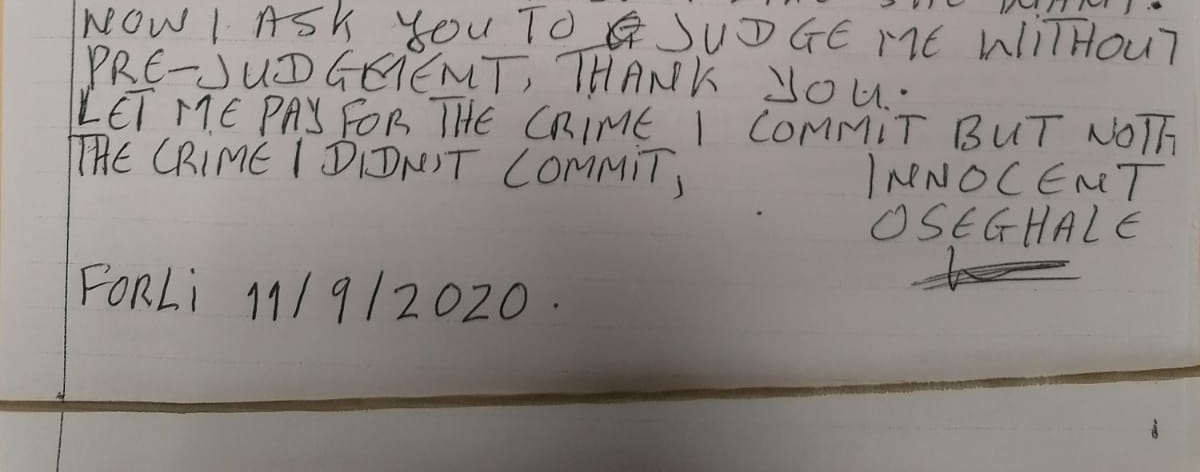 NOW I ASK YOU TO JUDGE ME WITHOUT
PRE-JUDGEMENT, THANK YOU.
LET ME PAY FOR THE CRIME I COMMIT BUT NOT
THE CRIME I DIDN'T COMMIT,
INNOCENT
OSEGHALE
FORLi 11/9/2020.